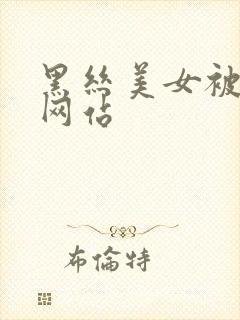 黑丝美女被
网站
布倫特